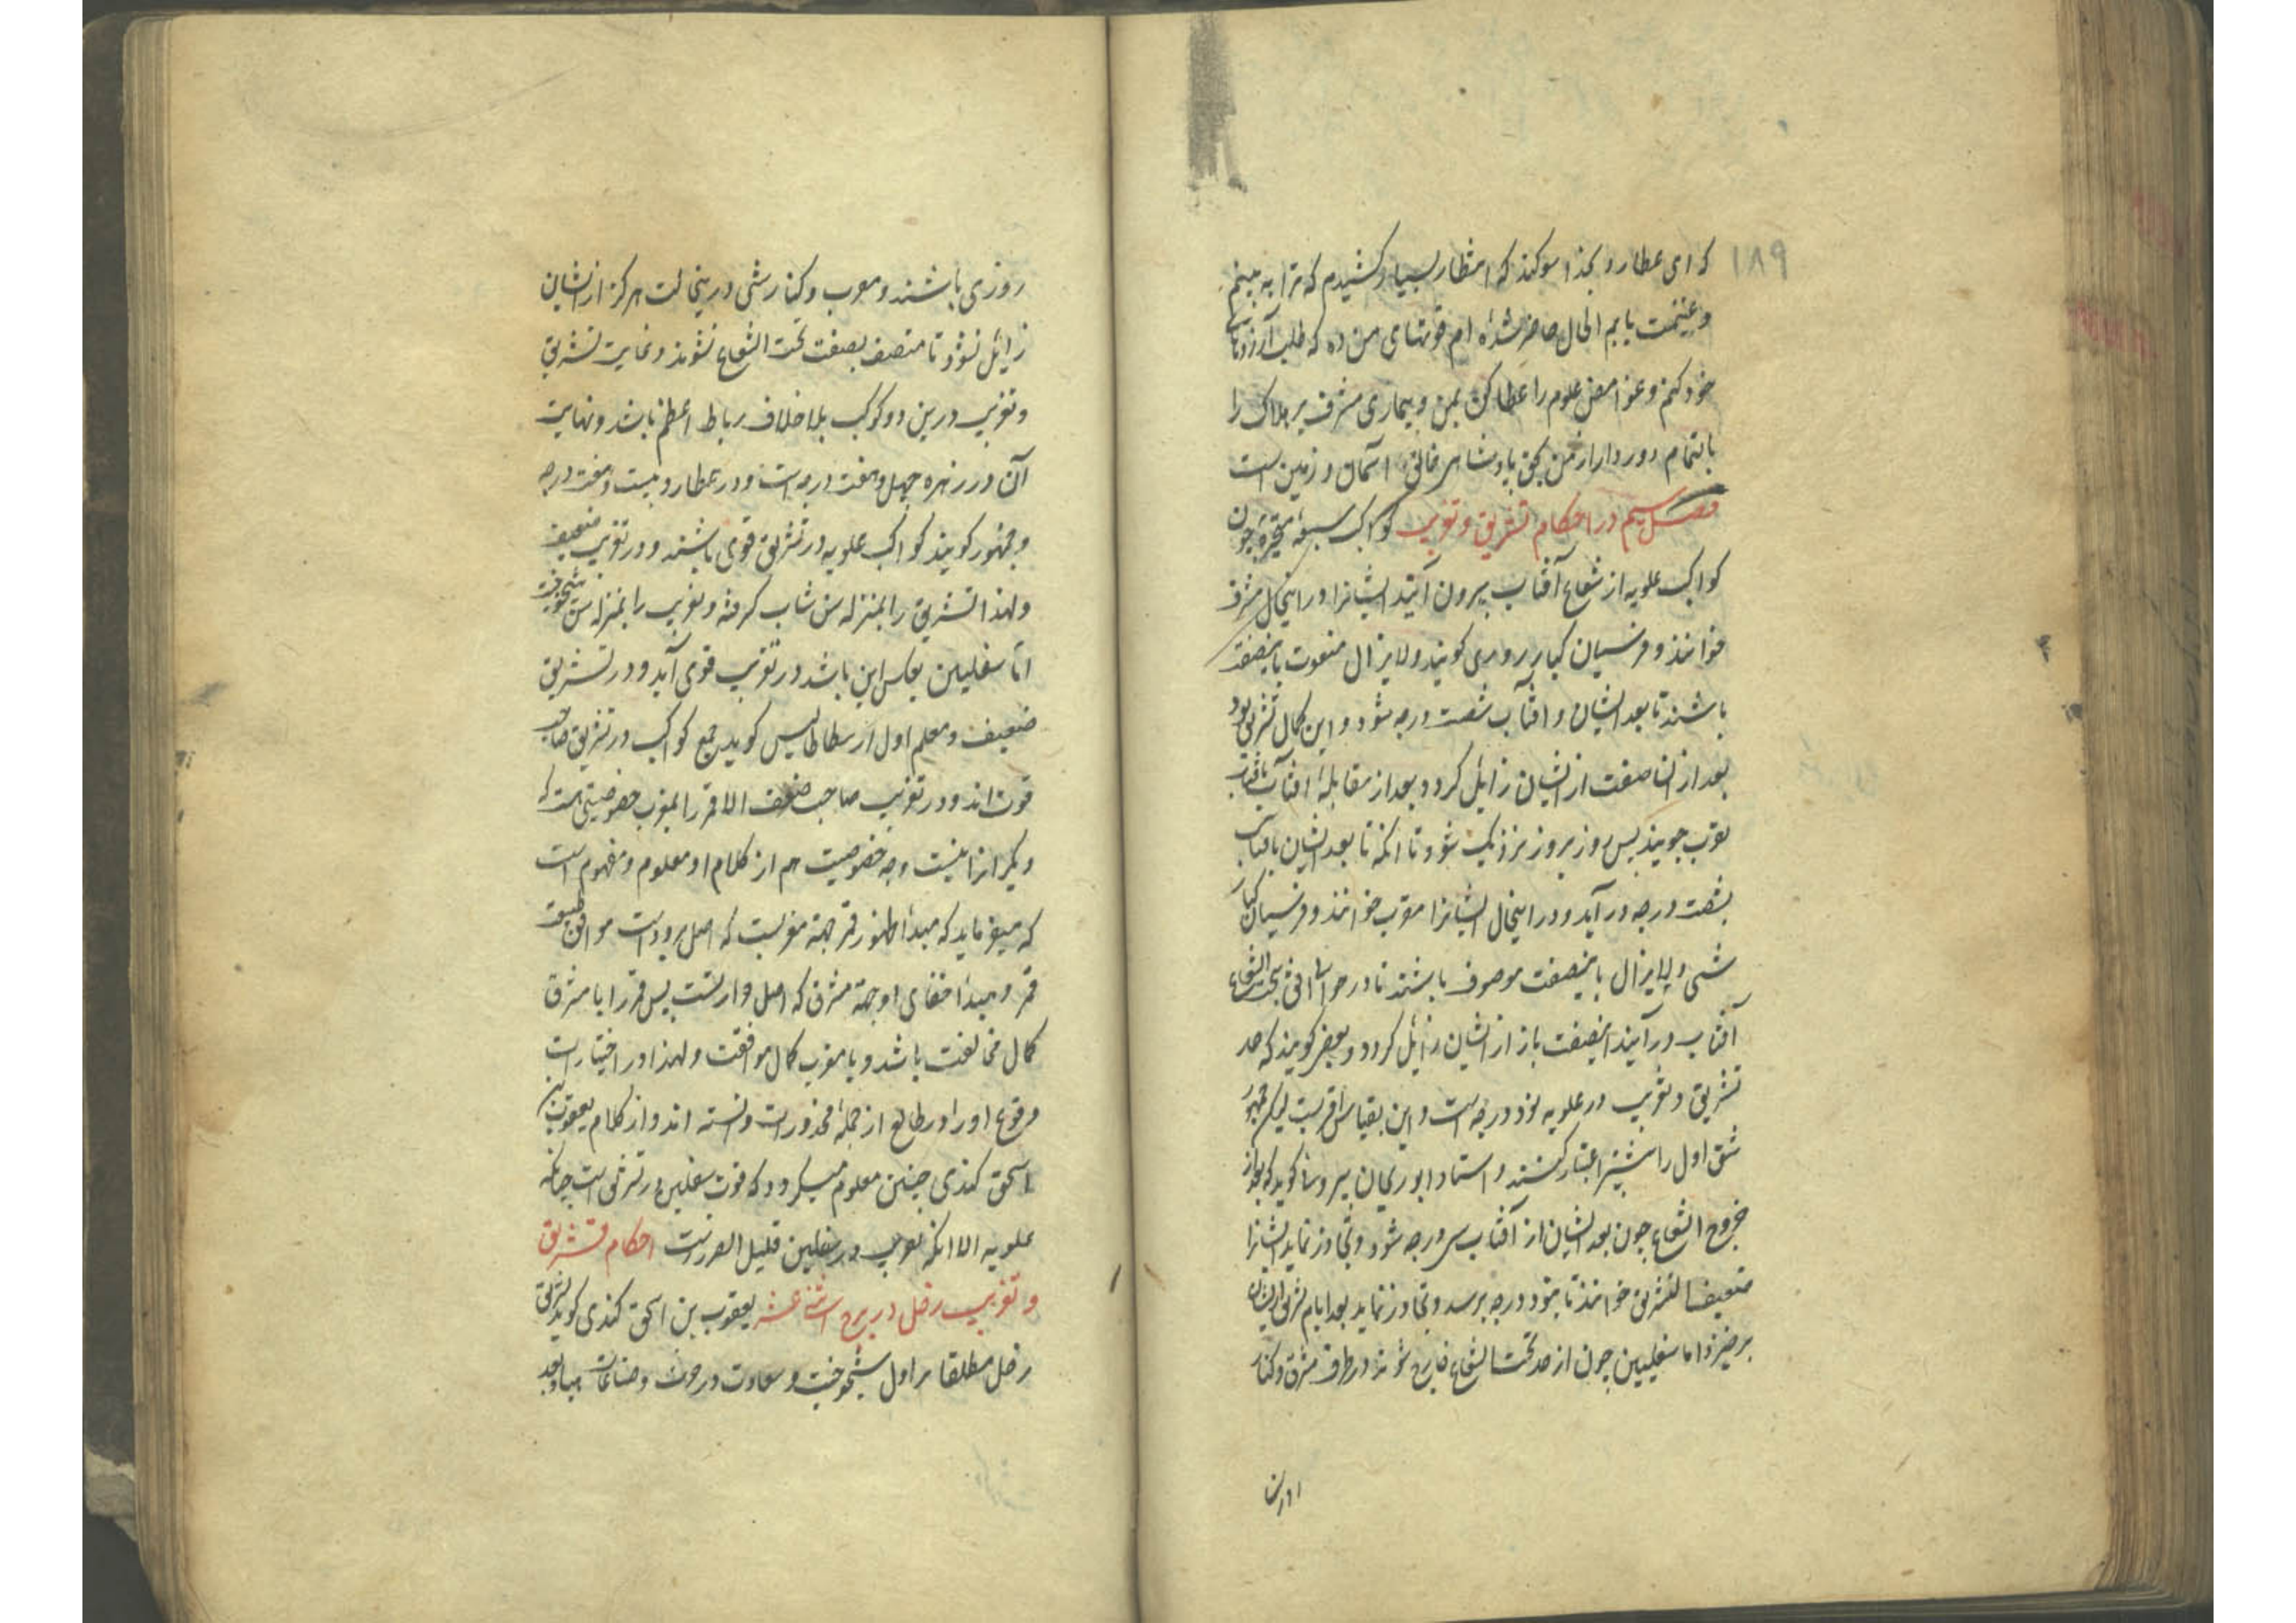 ۱۸۹
که ای عطارد بخدا سوکند که انتظار بسیار کشیدم که ترا به بینم
و غنیمت یابم الحال حاضر شده ام قوتهای من ده که طلب آرزوهای
خود کنم و غوامض علوم را عطا کن بمن و بیماری مشرف بر هلاک را
بالتمام دور دار از من بحق پادشاهی خالق آسمان و زمین است
فصل سیم در احکام تشریق و تغریب کواکب سبعه متحیره چون
کواکب علویه از شعاع آفتاب بیرون آیند ایشانرا در اینحال مشرق
خوانند و فرسیان کنار روزی کویند و لایزال منعوت باینصفت
باشند تا بعد ایشان و افتاب شصت درجه شود و این کمال تشریق بود
بعد از ان اینصفت از ایشان زایل کردد و بعد از مقابلهٔ افتاب بافتاب
تقرب جویند پس روز بروز نزدیک شود تا انکه تا بعد ایشان بافتاب
بشصت درجه در آید و در اینحال ایشانرا مغرب خوانند و فرسیان کنار
شبی و لایزال باینصفت موصوف باشند تا در حوالی تحت الشعاع
آفتاب در آیند اینصفت باز از ایشان زایل کردد و بعضی کویند که حد
تشریق و تغریب در علویه نود درجه است و این بقیاس اقربست لیکن جمهور
شق اول را بیشتر اعتبار کنند و استاد ابوریحان بیرونی کوید که بعد از
خروج الشعاع چون بعد ایشان از آفتاب سی درجه شود و تجاوز نماید ایشانرا
ضعیف التشریق خوانند تا بنود درجه برسد و تجاوز نماید بعد ایام تشریق ایشان
برخیزد اما سفلیین چون از حد تحت الشعاع خارج شوند در طرف مشرق و کنار
روزی باشند و مغرب و کنار شبی درینحالت هرکز از ایشان
زایل نشود تا متصف بصفت تحت الشعاع نشوند و غایت تشریق
و تغریب درین دو کوکب بلاخلاف رباط اعظم باشد و نهایت
آن در زهره چهل و هفت درجه است و در عطارد بیست و هفت درجه
و جمهور کویند کواکب علویه در تشریق قوی باشند و در تغریب ضعیف
و لهذا تشریق را بمنزله سن شاب کرفته و تغریب را بمنزله سن شیخوخت
اما سفلیین بعکس این باشد در تغریب قوی آید و در تشریق
ضعیف و معلم اول ارسطاطالیس کوید جمیع کواکب در تشریق صاحب
قوت اند و در تغریب صاحب ضعف الا قمر را بمغرب خصوصیتی هست که
دیکر انرا نیست و وجه خصوصیت هم از کلام او معلوم و مفهوم است
که میفرماید که مبدأ ظهور قمر جهة مغربست که اصل برودت است موافق طبیعت
قمر و مبدأ اخفای او جهة مشرق که اصل حرارتست پس قمر را با مشرق
کمال مخالفت باشد و با مغرب کمال موافقت و لهذا در اختیارات
وقوع او را در طالع از جمله محذورات دانسته اند و از کلام یعقوب بن
اسحق کندی چنین معلوم میکردد که قوت سفلیین در تشریق است چنانکه
علویه الا انکه تغریب در سفلیین قلیل الضررست احکام تشریق
و تغریب زحل در بروج اثنی عشر یعقوب بن اسحق کندی کوید تشریق
زحل مطلقا بر اول شیخوخت و سعادت در حرث و ضیاعات میاه بعد